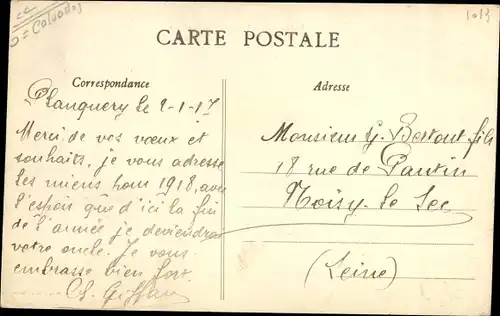 = Calvados
1013
CARTE POSTALE
Correspondance
Planquery le 2-1-17
Merci de vos vœux et
souhaits, je vous adresse
les miens pour 1918, avec
l'espoir que d'ici la fin
de l'année je deviendrai
votre oncle. Je vous
embrasse bien fort.
Ch.
Adresse
Monsieur G. Bertout fils
18 rue de Pantin
Noisy-le-Sec
(Seine)